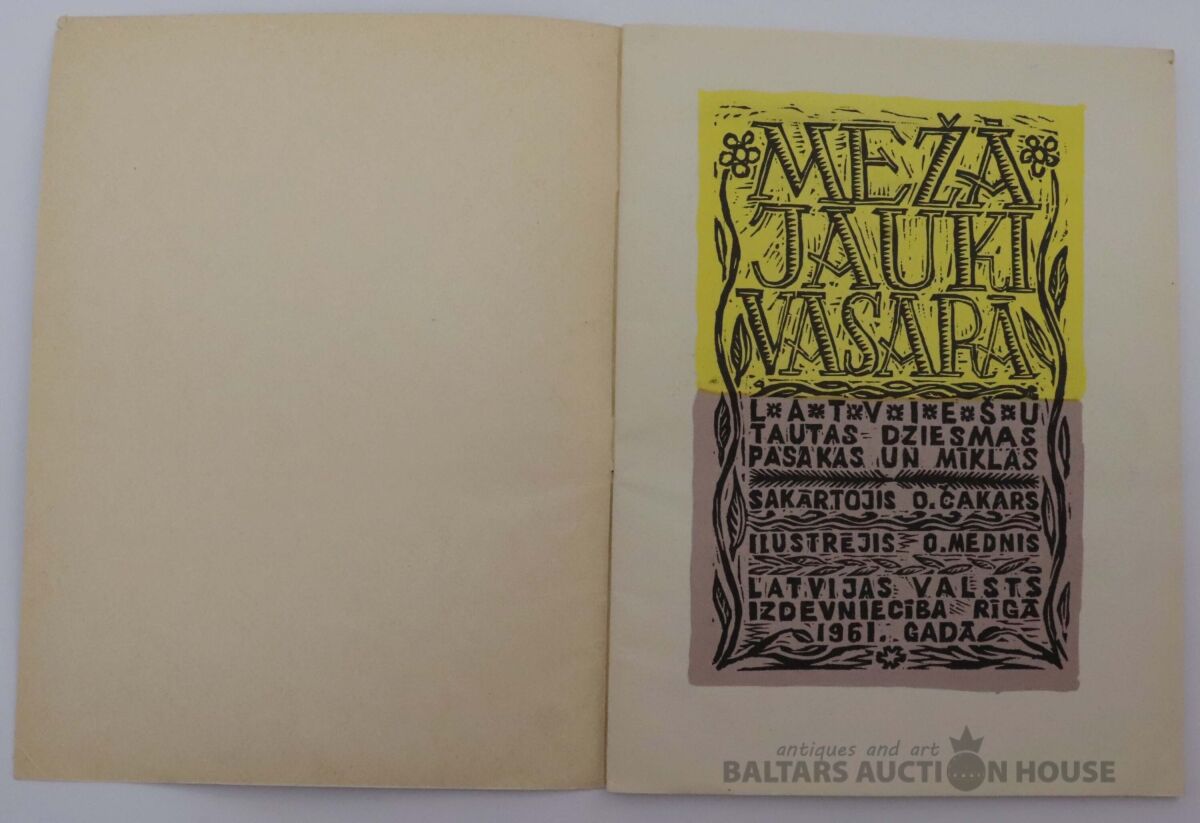 MEŽĀ
JAUKI
VASARĀ
LATVIEŠU
TAUTAS DZIESMAS
PASAKAS UN MĪKLAS
SAKĀRTOJIS O. ČAKARS
ILUSTRĒJIS O. MEDNIS
LATVIJAS VALSTS
IZDEVNIECĪBA RĪGĀ
1961. GADĀ
antiques and art
BALTARS AUCTION HOUSE